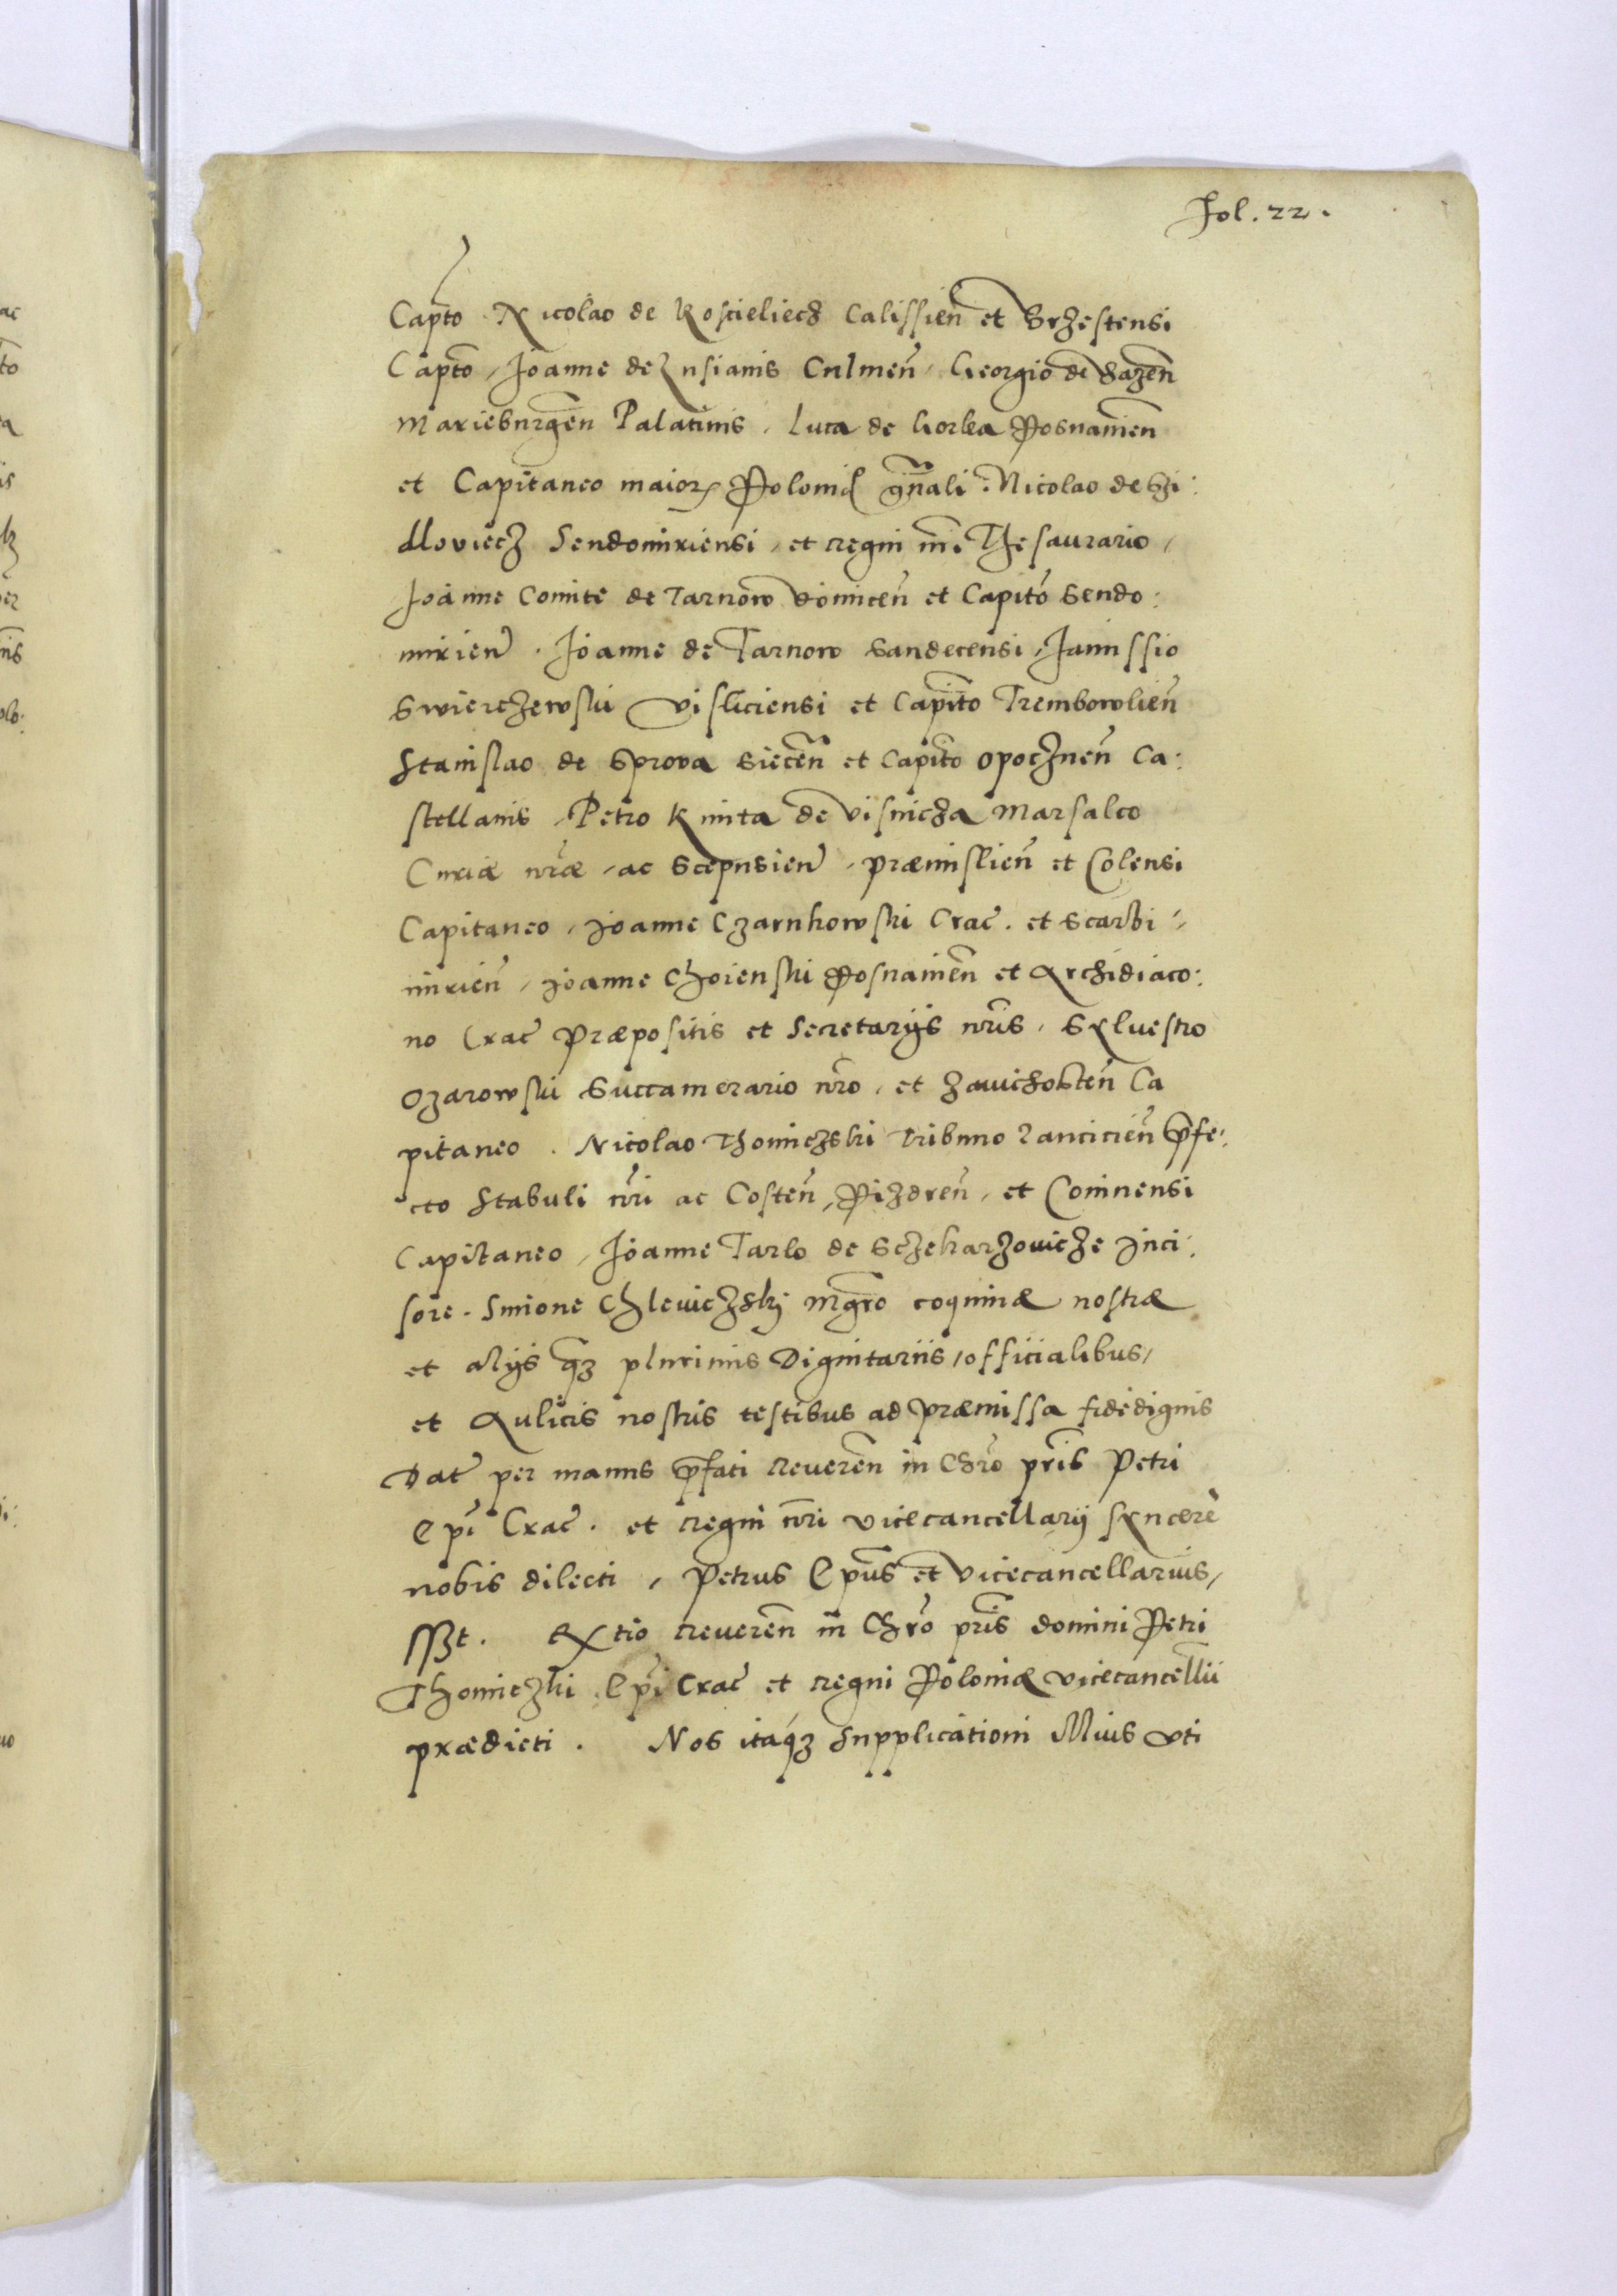 Fol. 22.
Capto Nicolao de Koscieliecz Calissien̄ et Brzestensi
Capto, Joanne de Lusianis Culmen̄, Georgio de Bazen̄
Marieburgen̄ Palatinis, Luca de Gorka Posnanien̄
et Capitaneo maior Poloniæ gn̄ali. Nicolao de Szi:
dloviecz Sendomiriensi, et regni nr̄i Thesaurario,
Joanne Comite de Tarnow Voinicen̄ et Capitō Sendo:
mirien̄. Joanne de Tarnow Sandecensi, Janussio
Swierczewski Visliciensi et Capitō Trembowlien̄
Stanislao de Sprova Siecen̄ et Capitō Opocznen̄ Ca:
stellanis, Petro Kmita de Visnicza Marsalco
Curiæ nr̄æ, ac Scepusien̄, Præmislien̄ et Colensi
Capitaneo, Joanne Czarnkowski Crac̄. et Scarbi:
mirien̄, Joanne Choienski Posnanien̄ et Archidiaco:
no Crac̄ Præpositis et Secretarijs nr̄is, Sylvestro
Ozarowski Succamerario nr̄o, et Zawichosten̄ Ca
pitaneo. Nicolao Thomiczski Tribuno Lancicien̄ p̄fe:
cto Stabuli nr̄i ac Costen̄, Pizdren̄, et Coninensi
Capitaneo, Joanne Tarlo de Sczekarzovicze Inci:
sore. Simone Chleviczski Mg̃ro coquinæ nostræ
et alijs q̃z plurimis Dignitariis, officialibus,
et Aulicis nostris testibus ad præmissa fidedignis
Dat̄ per manus p̄fati reveren̄ in Chr̄o pr̄is Petri
Ep̄i Crac̄. et regni nr̄i vicecancellarij syncerè
nobis dilecti, Petrus Ep̄us et Vicecancellarius,
sszt. Rx tio reveren̄ in Chr̄o pr̄is domini Petri
Thomiczki Ep̄i Crac̄ et regni Poloniæ vicecancell̄ii
prædicti. Nos itaq́z supplicationi illius uti